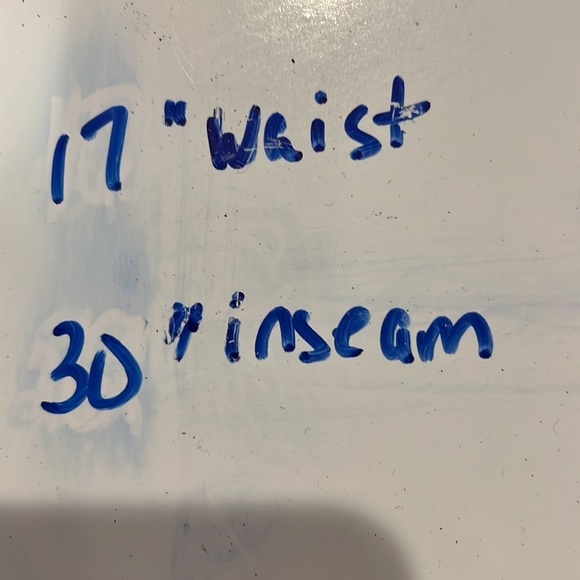 17" waist
30" inseam